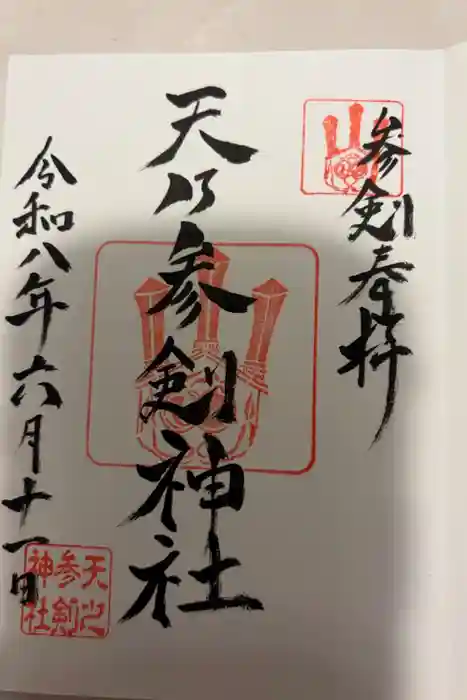 参剣奉拝
天乃参剣神社
令和八年六月十一日
天之
参剣
神社